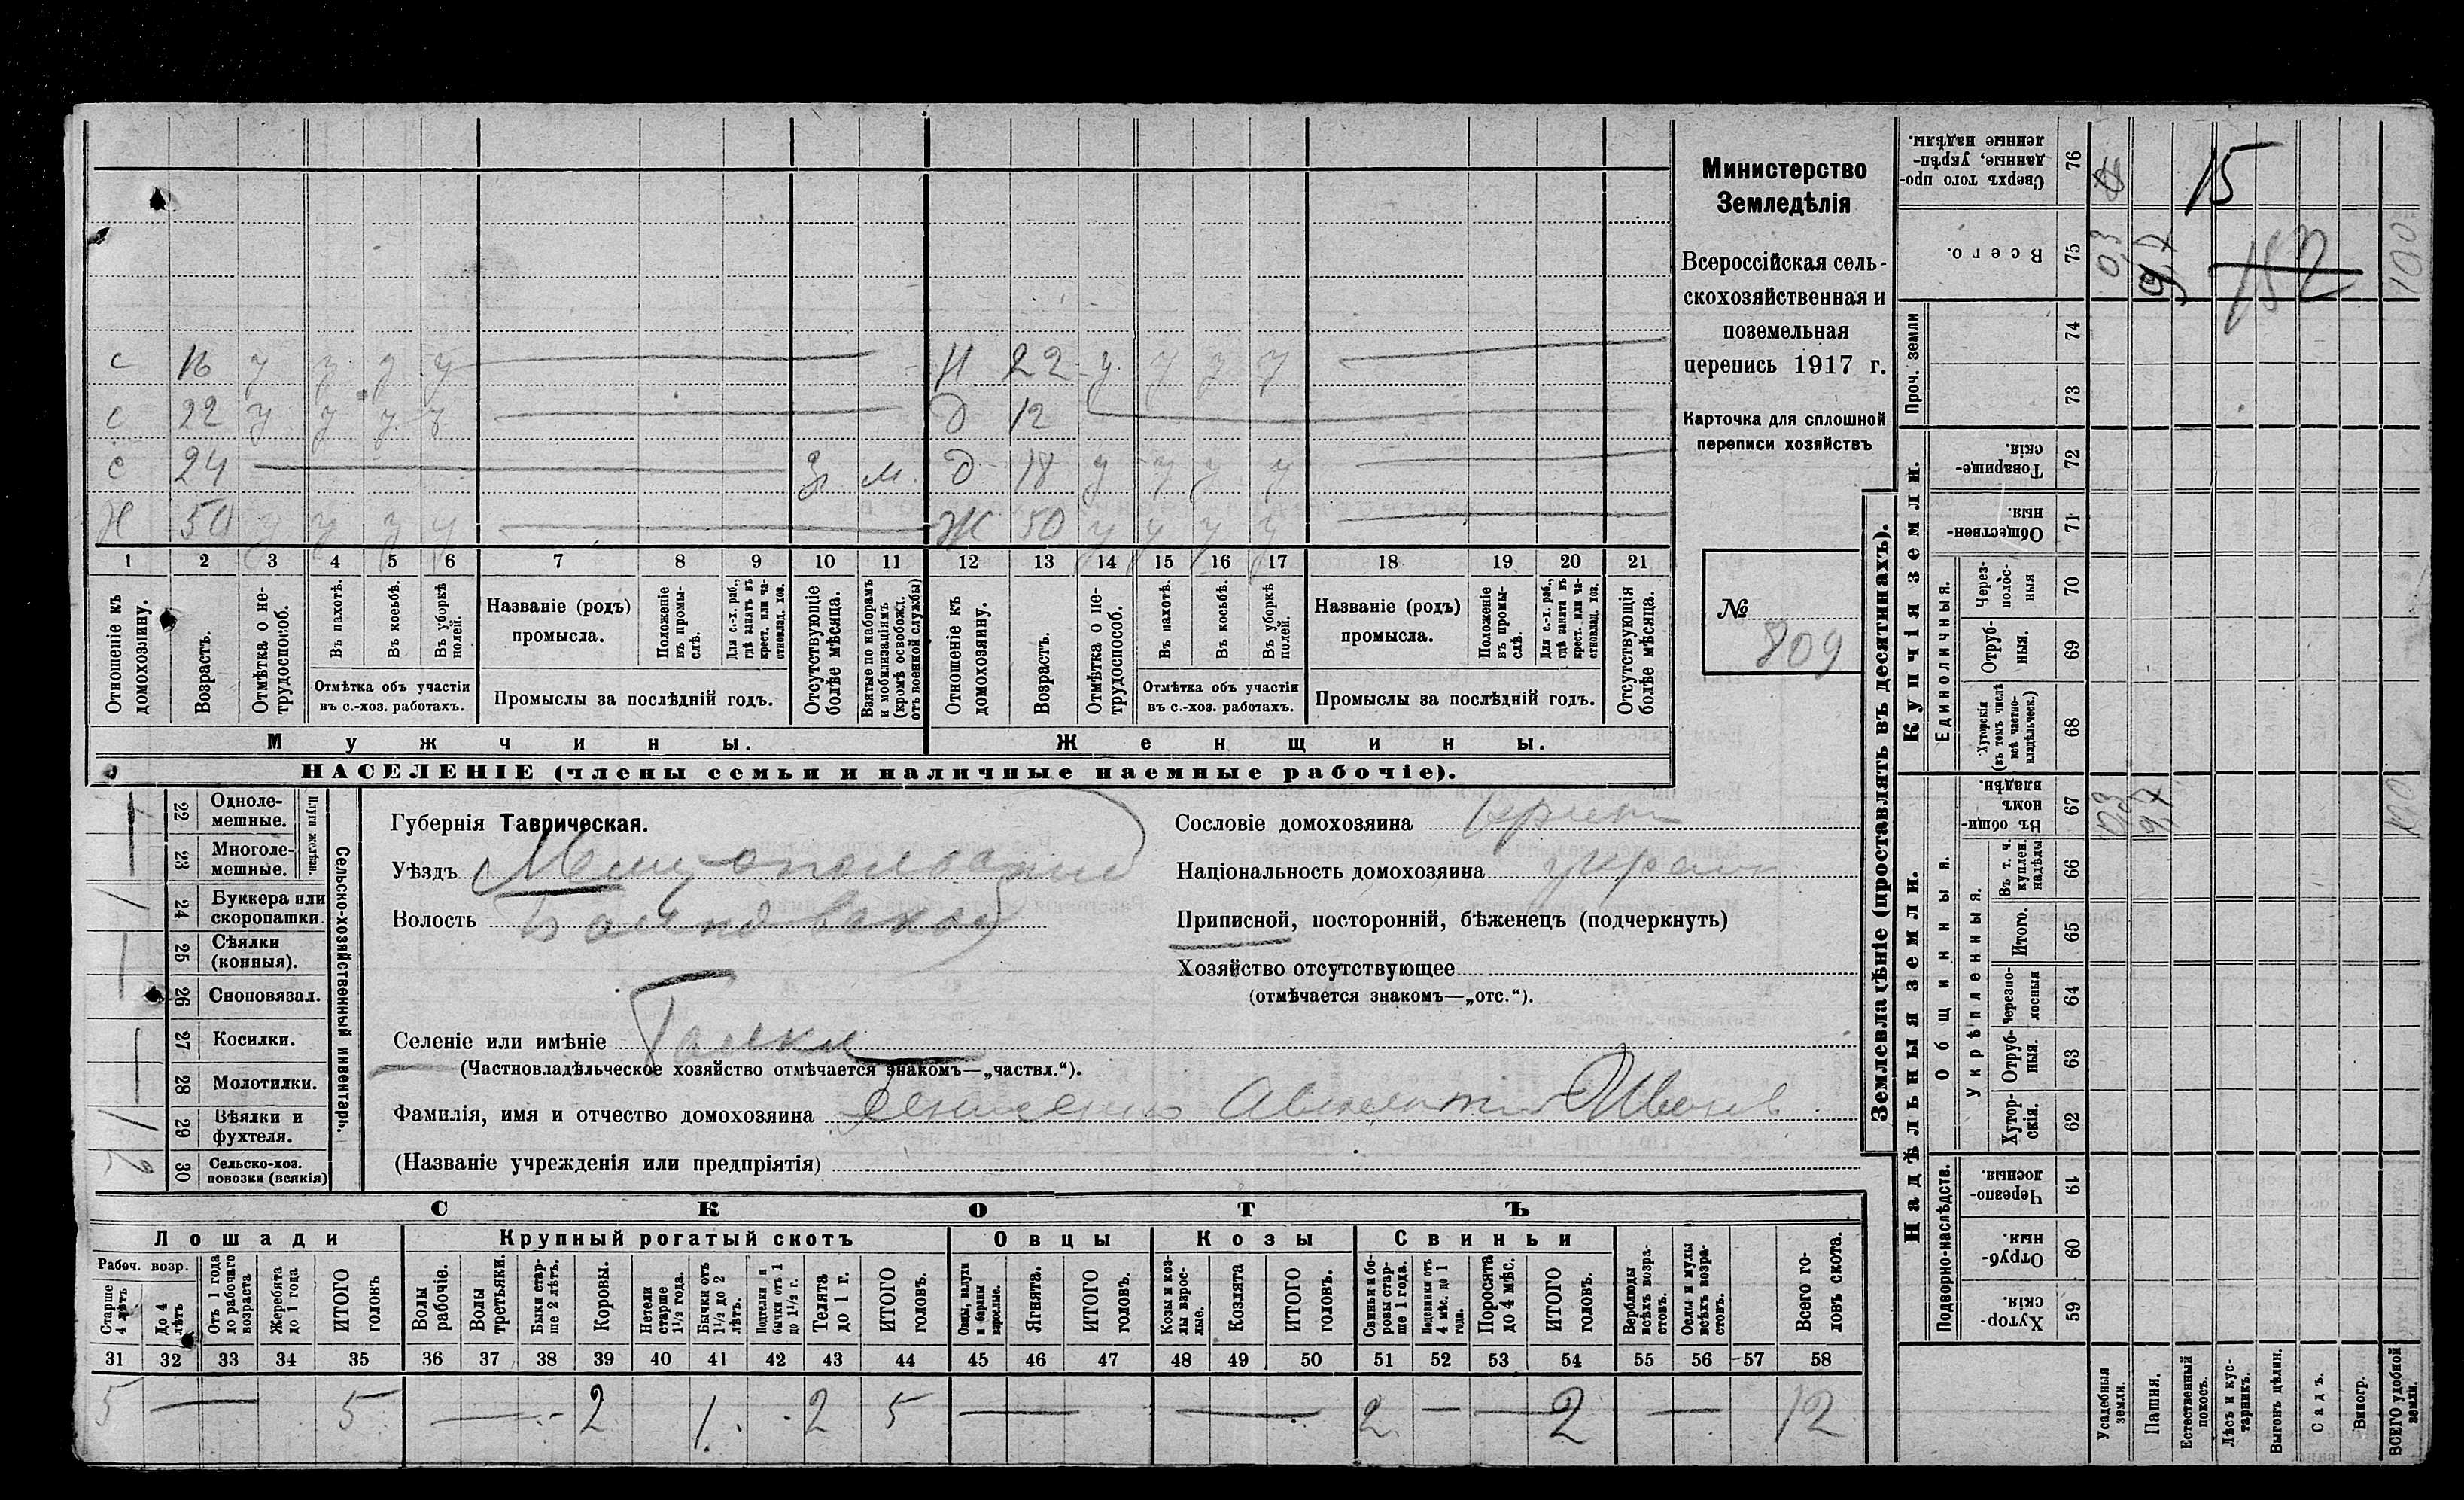 с 16 у у у у
Н 22 у у у у
с 22 у у у у
д 12
с 24
м.
д 18 у у у у
Х 50 у у у
Ж 50 у у у у
1 2 3 4 5 6 7 8 9 10 11 12 13 14 15 16 17 18 19 20 21
Отношеніе къ домохозяину.
Возрастъ.
Отмѣтка о не-трудоспособ.
Въ пахотѣ.
Въ косьбѣ.
Въ уборкѣ полей.
Отмѣтка объ участіи
въ с.-хоз. работахъ.
Названіе (родъ)
промысла.
Положеніе въ промы-слѣ.
Для с.-х. раб., гдѣ занятъ въ крест. или ча-стновлад. хоз.
Промыслы за послѣдній годъ.
Отсутствующіе болѣе мѣсяца.
Взятые по наборамъ и мобилизаціямъ (кромѣ освобожд. отъ военной службы)
Отношеніе къ домохозяину.
Возрастъ.
Отмѣтка о не-трудоспособ.
Въ пахотѣ.
Въ косьбѣ.
Въ уборкѣ полей.
Отмѣтка объ участіи
въ с.-хоз. работахъ.
Названіе (родъ)
промысла.
Положеніе въ промы-слѣ.
Для с.-х. раб., гдѣ занята въ крест. или ча-стновлад. хоз.
Промыслы за послѣдній годъ.
Отсутствующія болѣе мѣсяца.
Мужчины.
Женщины.
НАСЕЛЕНІЕ (члены семьи и наличные наемные рабочіе).
Министерство
Земледѣлія
Всероссійская сель-
скохозяйственная и
поземельная
перепись 1917 г.
Карточка для сплошной
переписи хозяйствъ
№
809
22 Одноле-мешные.
23 Многоле-мешные.
Плуги желѣзн.
24 Буккера или скоропашки.
25 Сѣялки (конныя).
26 Сноповязал.
27 Косилки.
28 Молотилки.
29 Вѣялки и фухтеля.
30 Сельско-хоз. повозки (всякія)
Сельско-хозяйственный инвентарь.
Губернія Таврическая.
Уѣздъ Мелитопольскій
Волость
Селеніе или имѣніе
(Частновладѣльческое хозяйство отмѣчается знакомъ—„частвл.“).
Фамилія, имя и отчество домохозяина
(Названіе учрежденія или предпріятія)
Сословіе домохозяина
Національность домохозяина
Приписной, посторонній, бѣженецъ (подчеркнуть)
Хозяйство отсутствующее
(отмѣчается знакомъ—„отс.“).
СКОТЪ
Лошади
Крупный рогатый скотъ
Овцы
Козы
Свиньи
Рабоч. возр.
Старше 4 лѣтъ
До 4 лѣтъ
Отъ 1 года до рабочаго возраста
Жеребята до 1 года
ИТОГО головъ
Волы рабочіе.
Волы третьяки.
Быки стар-ше 2 лѣтъ.
Коровы.
Нетели старше 1½ года.
Бычки отъ 1½ до 2 лѣтъ.
Подтелки и бычки отъ 1 до 1½ г.
Телята до 1 г.
ИТОГО головъ.
Овцы, валухи и бараны взрослые.
Ягнята.
ИТОГО головъ.
Козы и коз-лы взрос-лые.
Козлята
ИТОГО головъ.
Свиньи и бо-ровы стар-ше 1 года.
Подсвинки отъ 4 мѣс. до 1 года.
Поросята до 4 мѣс.
ИТОГО головъ.
Верблюды всѣхъ возра-стовъ.
Ослы и мулы всѣхъ возра-стовъ.
Всего го-ловъ скота.
31 32 33 34 35 36 37 38 39 40 41 42 43 44 45 46 47 48 49 50 51 52 53 54 55 56 57 58
5 — 5 — 2 1 2 5 — — 2 — — 2 — 12
Землевладѣніе (проставлять въ десятинахъ).
Надѣльныя земли.
Купчія земли.
Проч. земли
Подворно-наслѣдств.
Общинныя.
Укрѣпленныя.
Единоличныя.
Сверхъ того про-данные, укрѣп-ленные надѣлы. 76
15
Всего. 75
0,3 9,7 152 100
74
73
Товарище-скія. 72
Обществен-ныя. 71
Через-полос-ныя 70
Отруб-ныя. 69
Хуторскія (въ томъ числѣ всѣ частно-владѣльческ.) 68
Въ общин-номъ владѣн. 67
0,3 9,7 100
Въ т. ч. куплен. надѣлы 66
Итого. 65
Черезпо-лосныя 64
Отруб-ныя. 63
Хутор-скія. 62
Черезпо-лосныя. 61
Отруб-ныя. 60
Хутор-скія. 59
Усадебныя земли.
Пашня.
Естественный покосъ.
Лѣсъ и кус-тарникъ.
Выгонъ цѣлин.
Садъ.
Виногр.
ВСЕГО удобной земли.